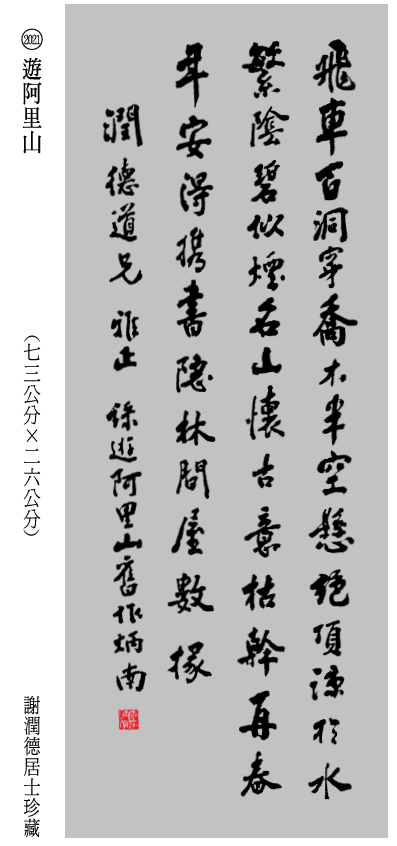 飛車百洞穿喬木半空懸絕頂涼於水
繁陰碧似煙名山懷古意枯幹再春
年安得携書隱林間屋數椽
潤德道兄 雅正 錄遊阿里山舊作炳南
2021 遊阿里山 （七三公分×二六公分） 謝潤德居士珍藏